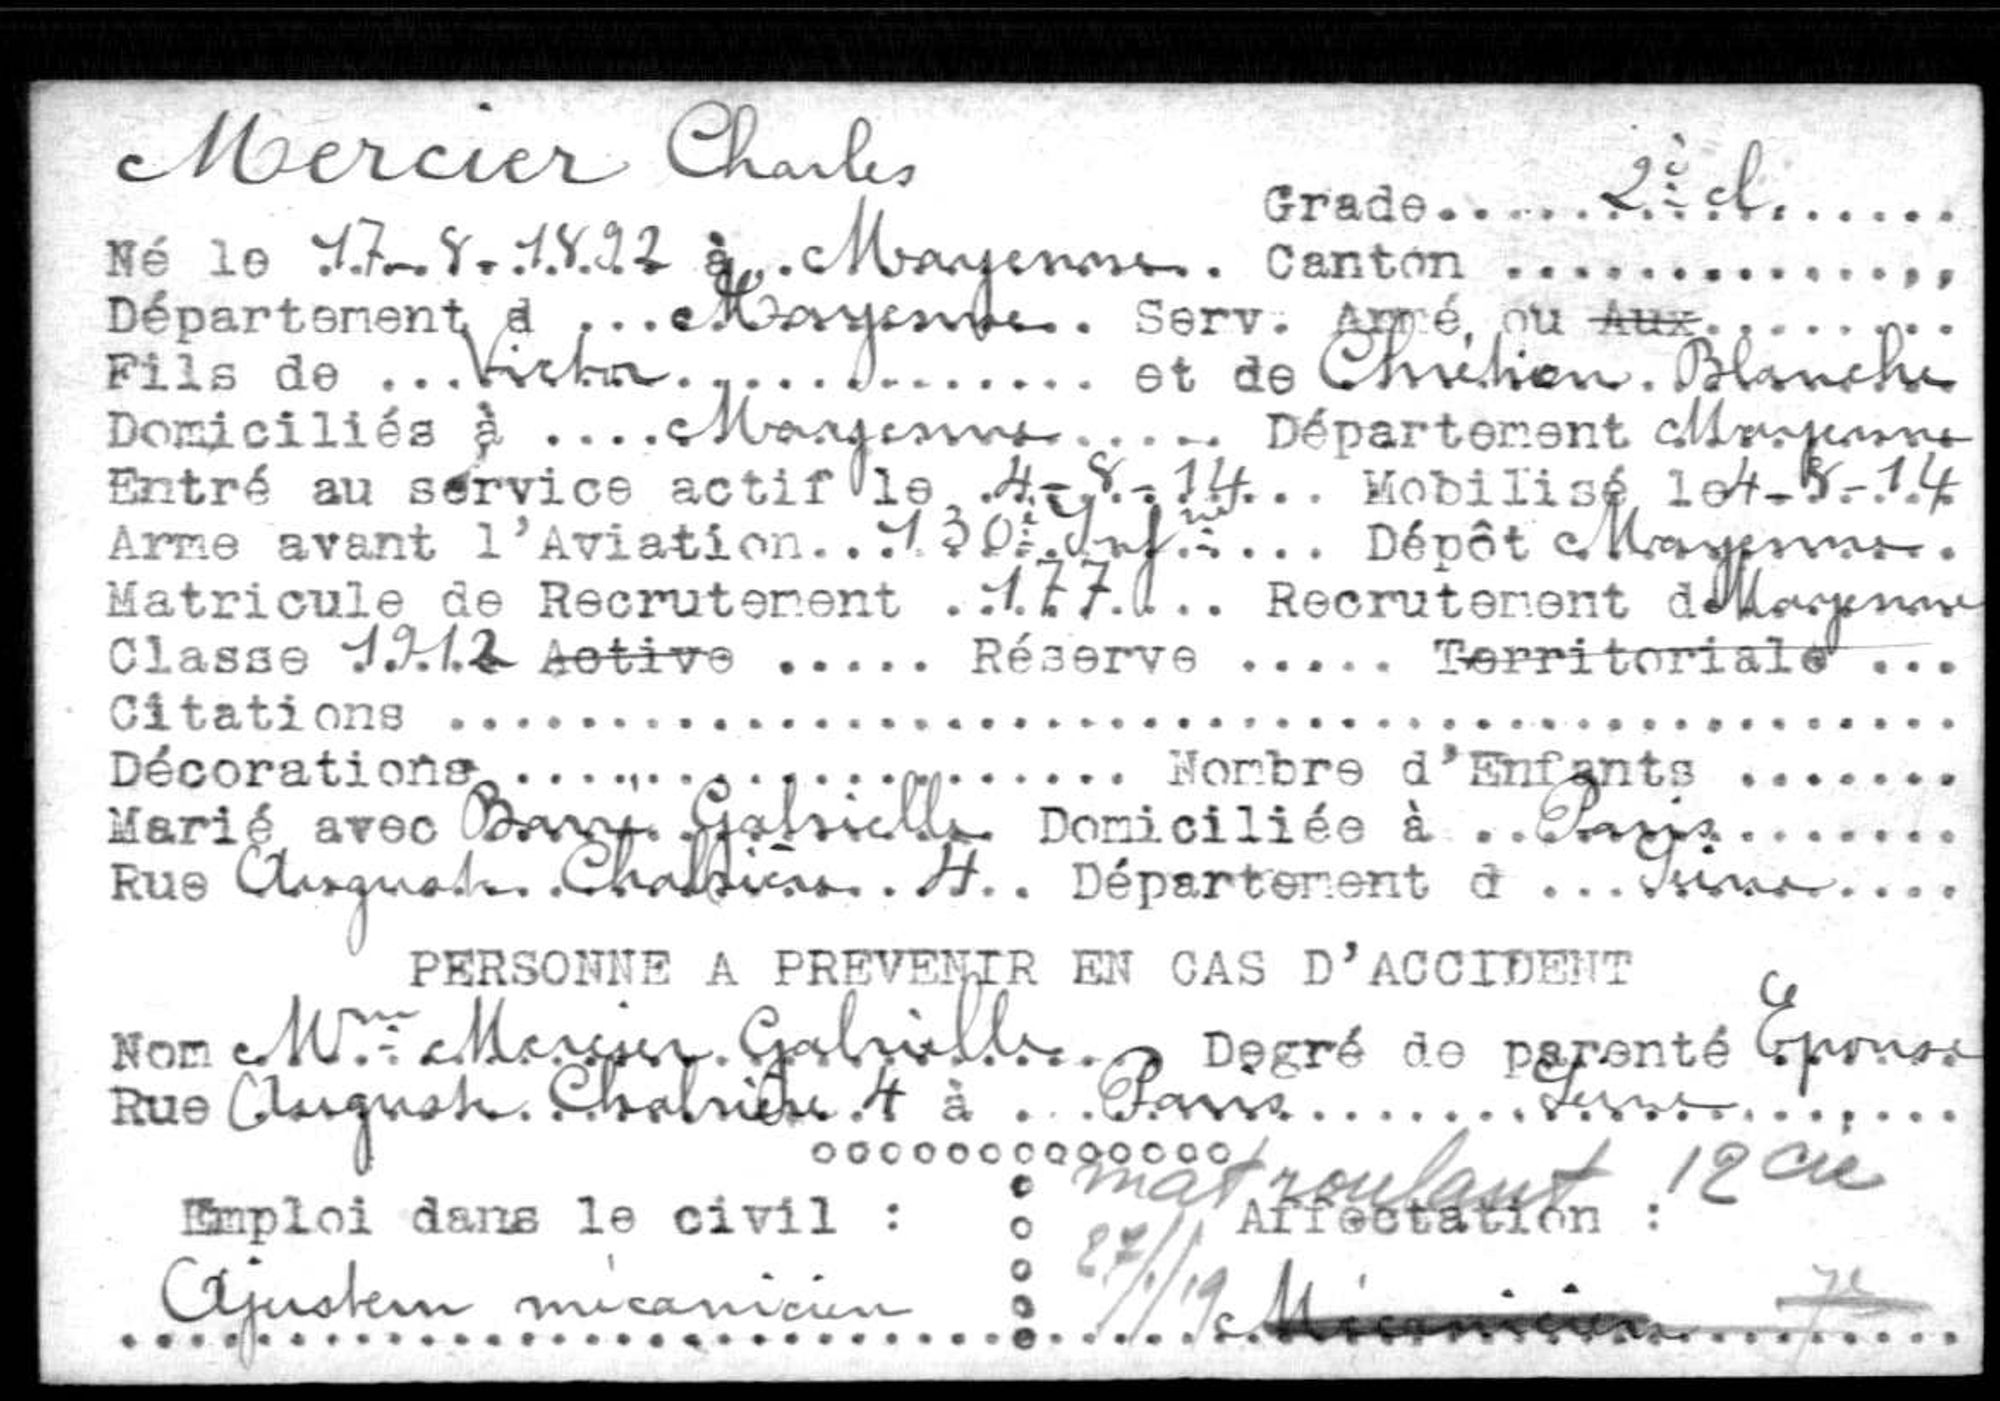 Mercier Charles
Grade 2è cl.
Né le 17-8-1892 à Mayenne Canton
Département d Mayenne Serv. Armé ou Aux
Fils de Victor et de Chrétien Blanche
Domiciliés à Mayenne Département Mayenne
Entré au service actif le 4-8-14 Mobilisé le 4-8-14
Arme avant l'Aviation 130è Infrie Dépôt Mayenne
Matricule de Recrutement 177 Recrutement d Mayenne
Classe 1912 Active Réserve Territoriale
Citations
Décorations Nombre d'Enfants
Marié avec Gabrielle Domiciliée à Paris
Rue Auguste Chabrière 4 Département d Seine
PERSONNE A PREVENIR EN CAS D'ACCIDENT
Nom Mme Mercier Gabrielle Degré de parenté Epouse
Rue Auguste Chabrière 4 à Paris Seine
oooooooooooooo
mat roulant 12 cie
Emploi dans le civil : Affectation :
27/1/19
Ajusteur mécanicien Mécanicien 7e